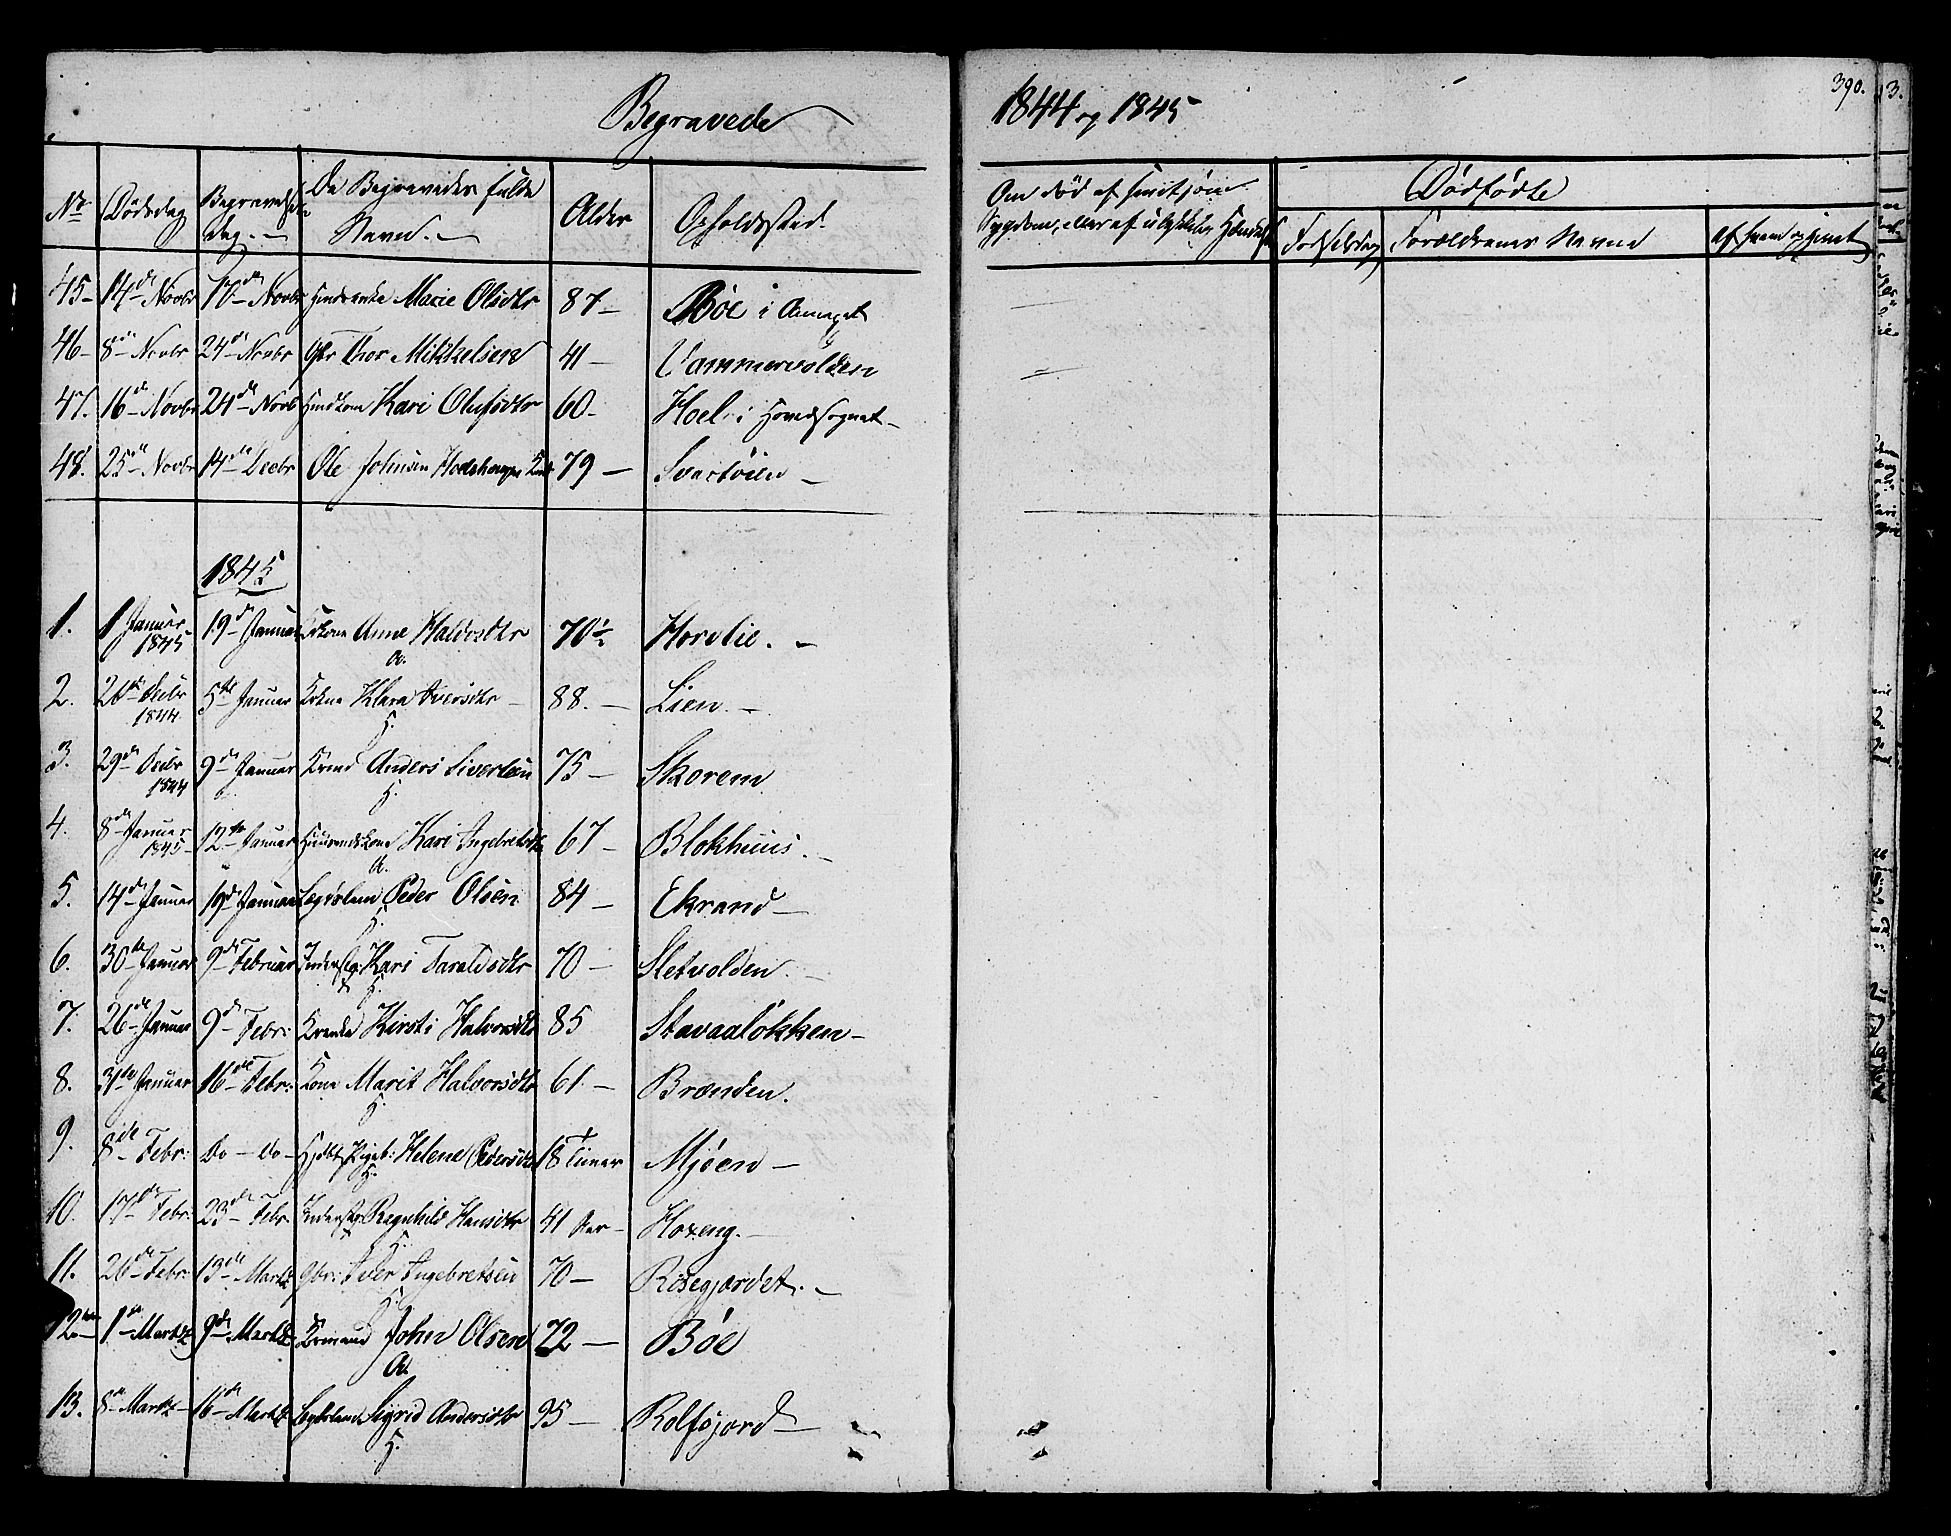 Begravede
1844 og 1845
390.
No Dødsdag Begravelses Dag. De Begravedes fulde Navn. Alder Opholdssted.
Om død af smitsom Sygdom, eller af ulykkelig Hændelse
Dødfødte
Fødselsdag Forældrenes Navne
45 14de Novbr 17de Novbr Marie Olsdtr 87 Bøe i Annexet
46 8de Novbr 24de Novbr Gbr Thor Mikkelsen 41 Vammervolden
47. 16de Novbr 24de Novb Kari Olufsdtr 60 Hoel i Hovedsognet
48. 25de Novbr 14de Decbr Ole Johnsen 79 Svartøien
1845
1. 1 Januar 1845 19de Januar Anne Halvosdtr 70½ Hordlie.
A.
2. 26de Decbr 1844 5te Januar Klara Iversdtr 88. Lien.
H.
3. 29de Decbr 1844 9de Januar Anders Siversen 75 Skorem
H.
4. 8de Januar 1845 12te Januar Kari Ingebretsdtr 67 Blokhuus.
A.
5. 14de Januar 19de Januar Lægdslem Peder Olsen 84 Ekrand
H.
6. 30te Januar 9de Februar Inderstg: Kari Taraldsdtr 70 Sletvolden
H.
7. 26de Januar 9de Febr: Kirsti Halvorsdtr 85 Stavaaløkken
8. 31te Januar 16de Febr: Kone Marit Halvorsdtr 61. Brænden.
H.
9. 8de Febr: Do Do Hjdbt Pigeb: Helene Pedersdtr 18 Timer Mjøen
H.
10. 17de Febr: 23de Febr. Inderstg Ragnhild Hansdtr 41 Aar Hoxeng.
H.
11. 26de Febr: 13de Martz Gbr: Peder Ingebretsen 70 Risegjordet.
H.
12. 1de Martz 9de Martz John Olsen 72 Bøe
A.
13. 8de Martz 16de Martz Sigrid Andersdtr 95 Rolfsjord
H.